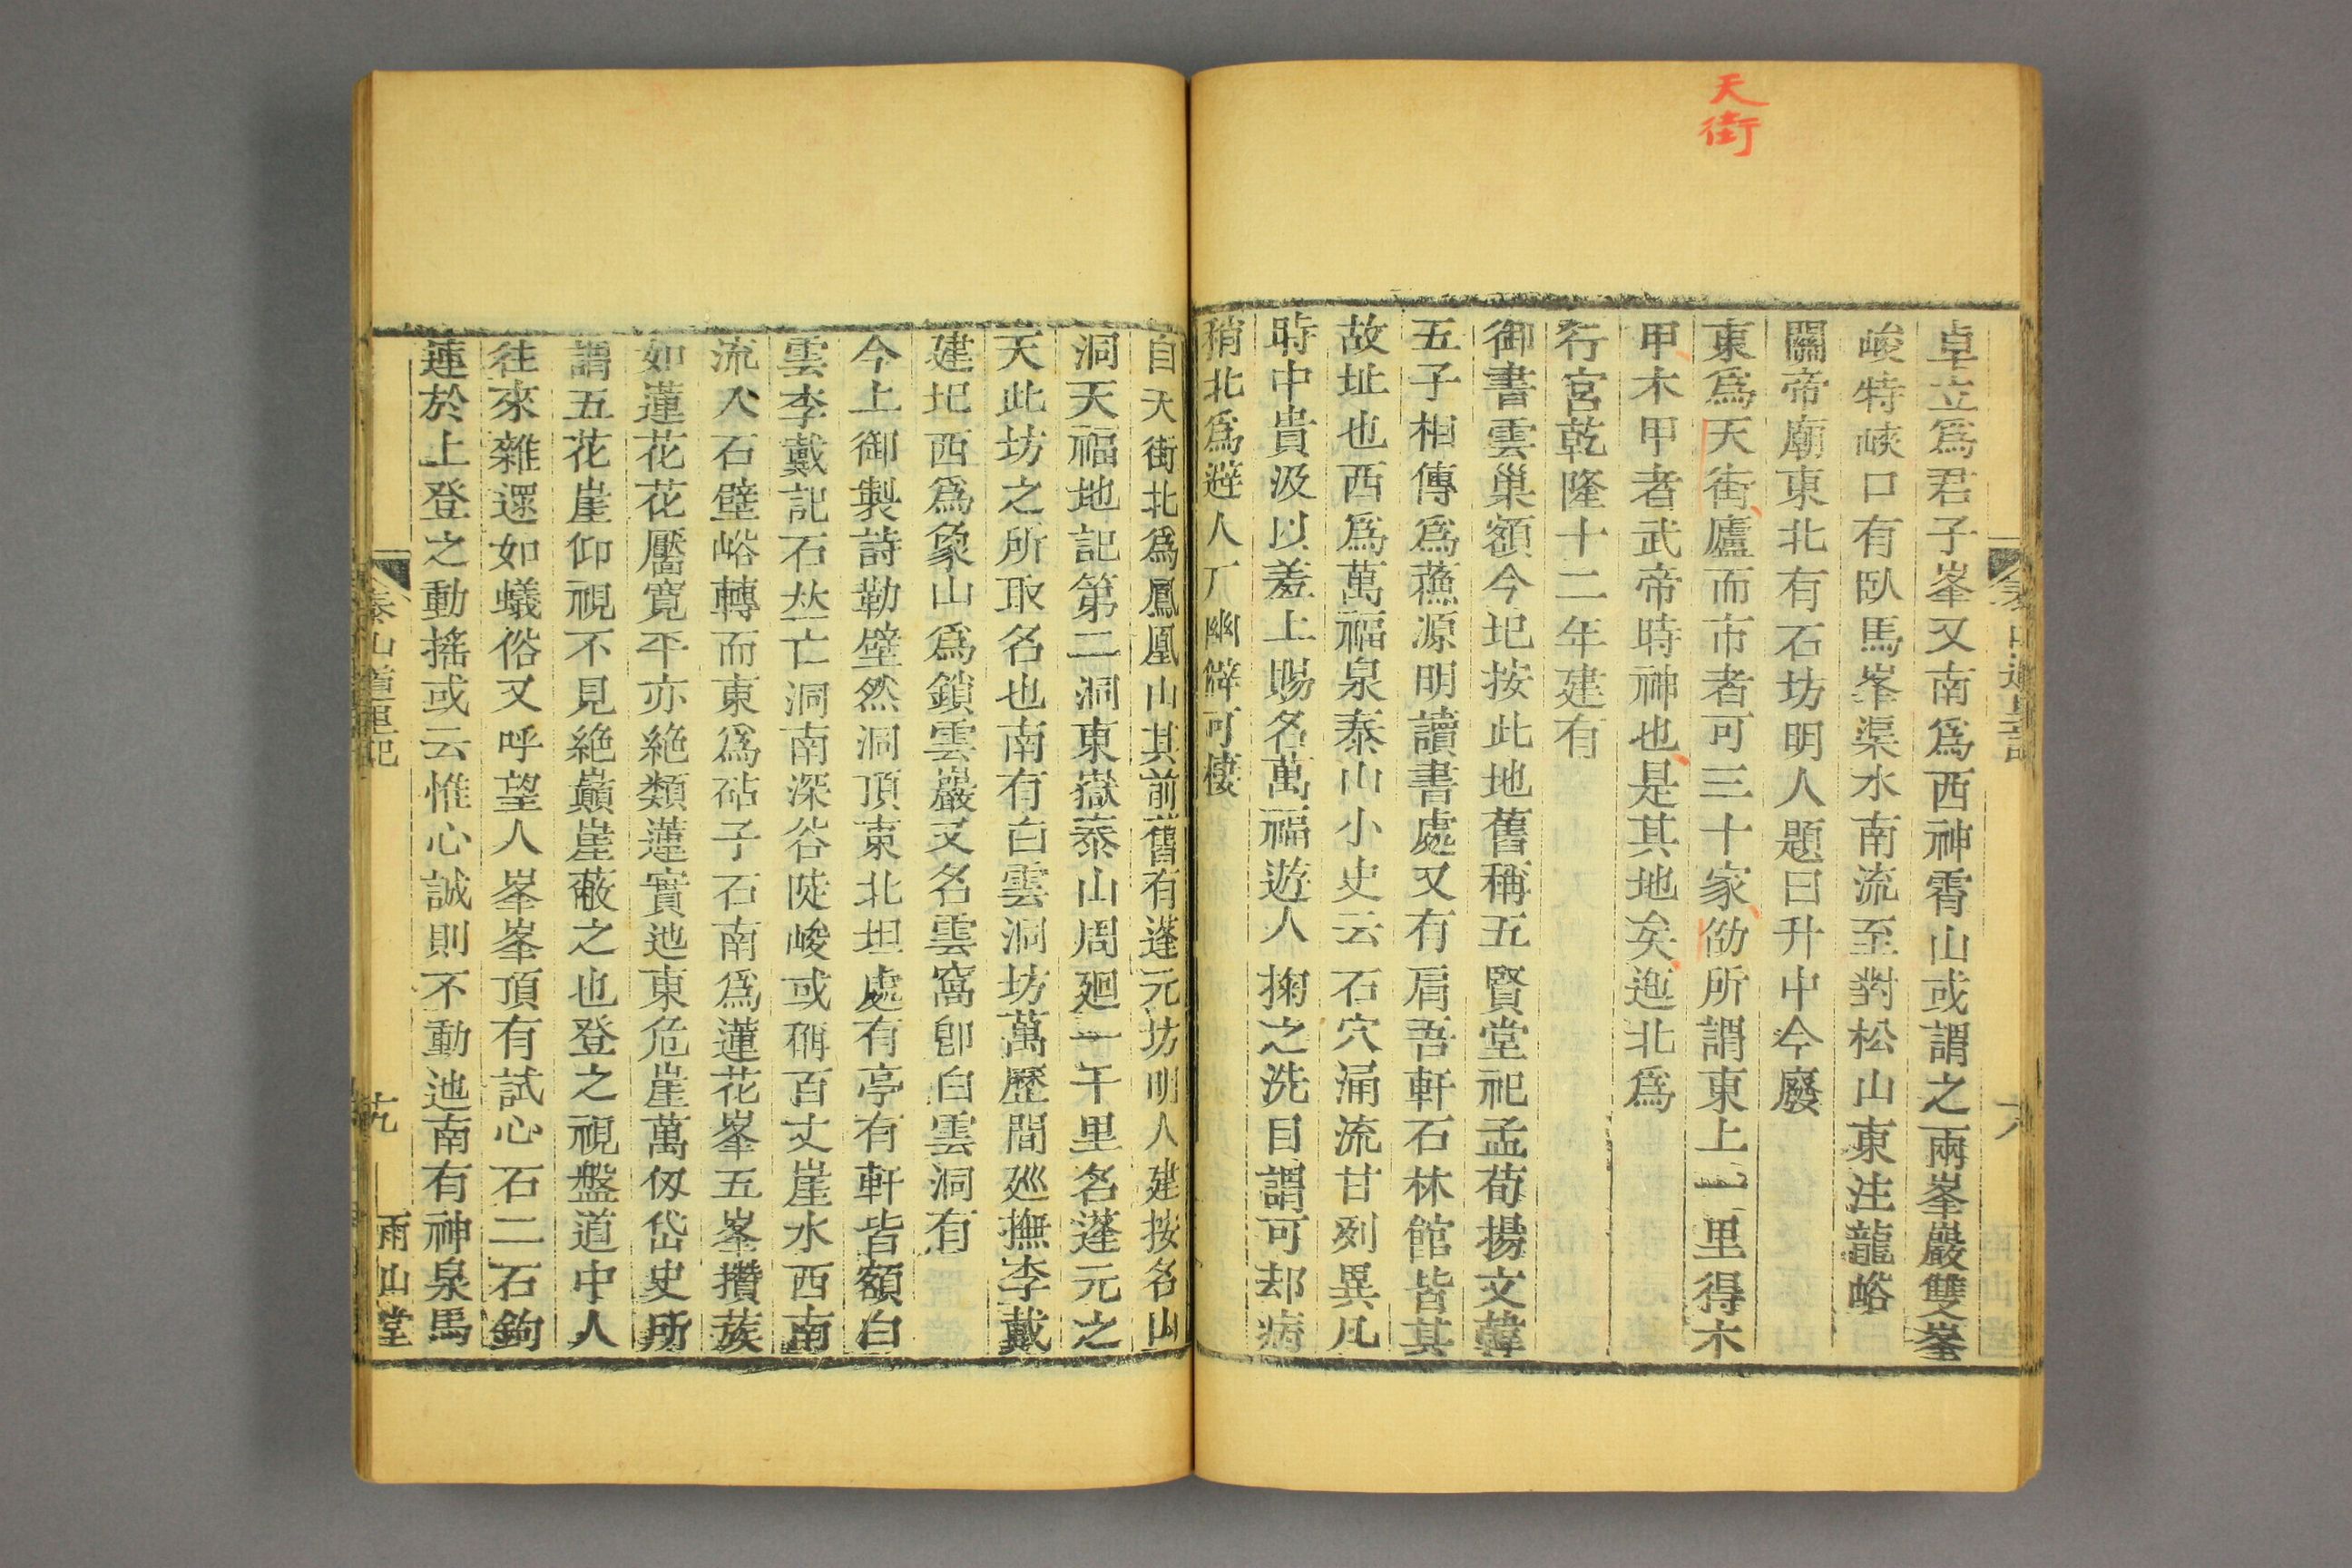 天街
卓立爲君子峯又南爲西神霄山或謂之兩峯巖雙峯
峻特峽口有臥馬峯渠水南流至對松山東注龍峪
關帝廟東北有石坊明人題曰升中今廢
東爲天街廬而市者可三十家勔所謂東上一里得木
甲木甲者武帝時神也是其地矣迤北爲
行宮乾隆十二年建有
御書雲巢額今圯按此地舊稱五賢堂祀孟荀揚文韓
五子相傳爲蕉源明讀書處又有肩吾軒石林館皆其
故址也西爲萬福泉泰山小史云石穴涌流甘冽異凡
時中貴汲以羞上賜名萬福遊人掬之洗目謂可却病
稍北爲避人厂幽僻可棲
泰山道里記
六
自天街北爲鳳凰山其前舊有蓬元坊明人建按名山
洞天福地記第二洞東嶽泰山周廻一千里名蓬元之
天此坊之所取名也南有白雲洞坊萬歷間巡撫李戴
建圯西爲象山爲鎖雲巖又名雲窩卽白雲洞有
今上御製詩勒壁然洞頂東北坦處有亭有軒皆額白
雲李戴記石丛亡洞南深谷陡峻或稱百丈崖水西南
流入石壁峪轉而東爲砧子石南爲蓮花峯五峯攢蔟
如蓮花花靨寛平亦絶類蓮實迆東危崖萬仭岱史所
謂五花崖仰視不見絶巔崖蔽之也登之視盤道中人
往來雜遝如蟻俗又呼望人峯峯頂有試心石二石鉤
連於上登之動搖或云惟心誠則不動迆南有神泉馬
泰山道里記
十九
雨山堂